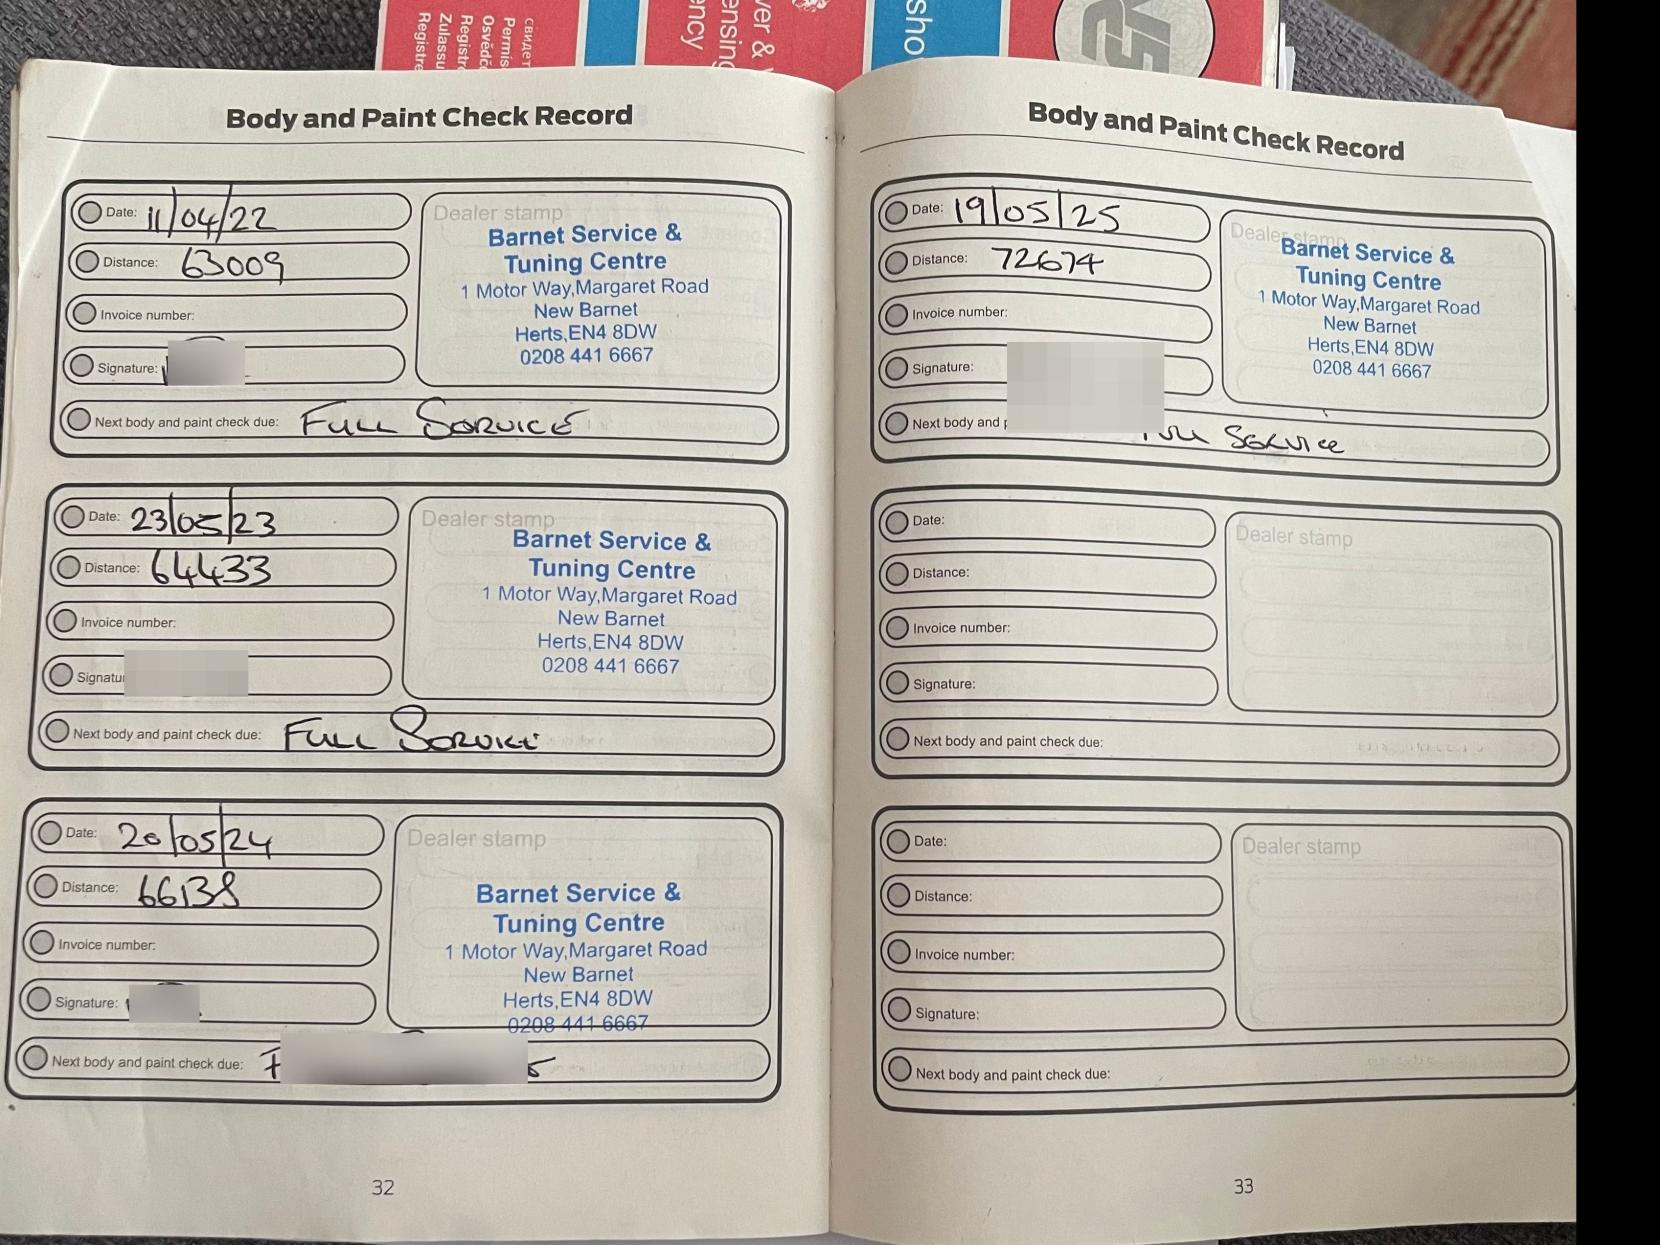 свидет
Permis
Osvědč
Registr
Zulassu
Registre
ver &
ensing
ency
sho
Body and Paint Check Record
Date: 11/04/22
Distance: 63009
Invoice number:
Signature:
Next body and paint check due: FULL SERVICE
Dealer stamp
Barnet Service &
Tuning Centre
1 Motor Way,Margaret Road
New Barnet
Herts,EN4 8DW
0208 441 6667
Date: 23/05/23
Distance: 64433
Invoice number:
Signatu
Next body and paint check due: FULL SERVICE
Dealer stamp
Barnet Service &
Tuning Centre
1 Motor Way,Margaret Road
New Barnet
Herts,EN4 8DW
0208 441 6667
Date: 20/05/24
Distance: 66138
Invoice number:
Signature:
Next body and paint check due: F
Dealer stamp
Barnet Service &
Tuning Centre
1 Motor Way,Margaret Road
New Barnet
Herts,EN4 8DW
0208 441 6667
32
Body and Paint Check Record
Date: 19/05/25
Distance: 72674
Invoice number:
Signature:
Next body and Service
Dealer stamp
Barnet Service &
Tuning Centre
1 Motor Way,Margaret Road
New Barnet
Herts,EN4 8DW
0208 441 6667
Date:
Distance:
Invoice number:
Signature:
Next body and paint check due:
Dealer stamp
Date:
Distance:
Invoice number:
Signature:
Next body and paint check due:
Dealer stamp
33